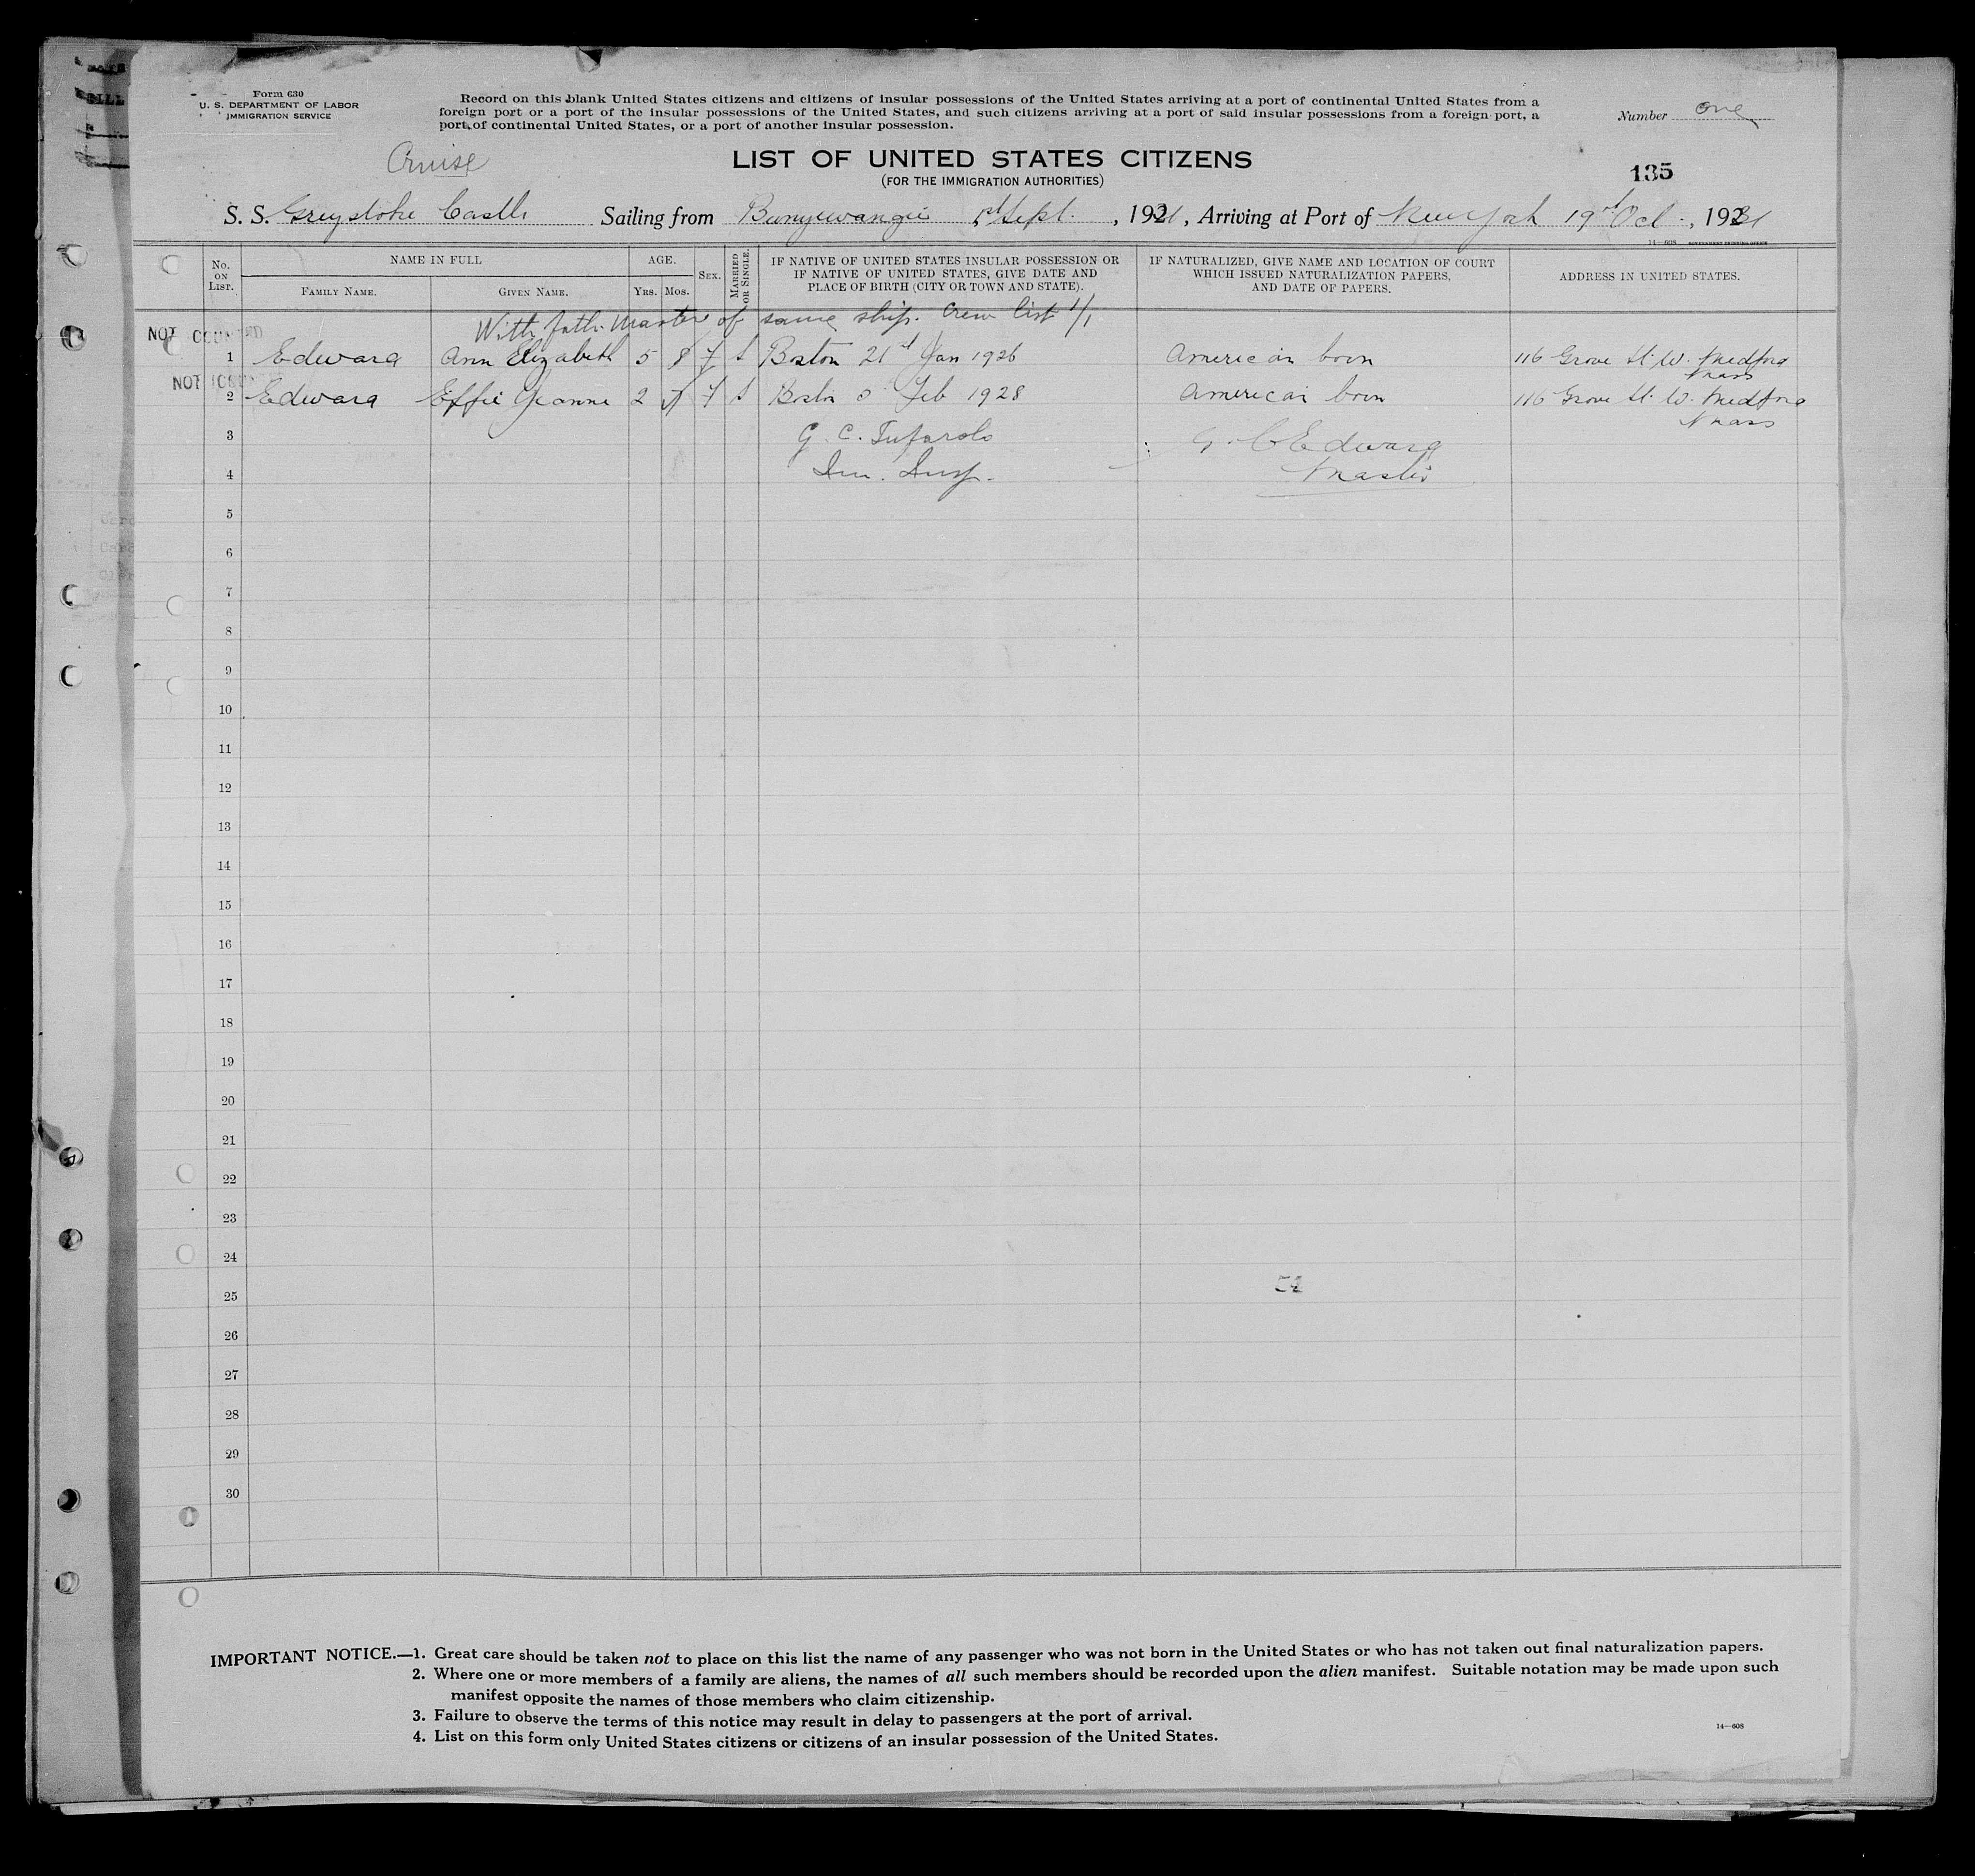 Form 630
U. S. DEPARTMENT OF LABOR
IMMIGRATION SERVICE
Record on this blank United States citizens and citizens of insular possessions of the United States arriving at a port of continental United States from a
foreign port or a port of the insular possessions of the United States, and such citizens arriving at a port of said insular possessions from a foreign port, a
port of continental United States, or a port of another insular possession.
Number one
Cruise
LIST OF UNITED STATES CITIZENS
(FOR THE IMMIGRATION AUTHORITIES)
135
S. S. Greystoke Castle Sailing from Banyuwangie Sept. , 1931, Arriving at Port of New York 19th Oct., 1931
14—608 GOVERNMENT PRINTING OFFICE
No. ON LIST. NAME IN FULL AGE. SEX. MARRIED OR SINGLE. IF NATIVE OF UNITED STATES INSULAR POSSESSION OR IF NATIVE OF UNITED STATES, GIVE DATE AND PLACE OF BIRTH (CITY OR TOWN AND STATE). IF NATURALIZED, GIVE NAME AND LOCATION OF COURT WHICH ISSUED NATURALIZATION PAPERS, AND DATE OF PAPERS. ADDRESS IN UNITED STATES.
FAMILY NAME. GIVEN NAME. YRS. MOS.
With father Master of same ship. Crew list 1/1
NOT COUNTED
1 Edward Ann Elizabeth 5 8 f S Boston 21st Jan 1926 American born 116 Grove St. W. Medford Mass
NOT COUNTED
2 Edward Effie Jeanne 2 f S Boston Feb 1928 American born 116 Grove St. W. Medford Mass
3 G. C. Tufarolo G. C. Edward
4 Im. Insp. Master
5
6
7
8
9
10
11
12
13
14
15
16
17
18
19
20
21
22
23
24
25
26
27
28
29
30
IMPORTANT NOTICE.—1. Great care should be taken not to place on this list the name of any passenger who was not born in the United States or who has not taken out final naturalization papers.
2. Where one or more members of a family are aliens, the names of all such members should be recorded upon the alien manifest. Suitable notation may be made upon such
manifest opposite the names of those members who claim citizenship.
3. Failure to observe the terms of this notice may result in delay to passengers at the port of arrival.
4. List on this form only United States citizens or citizens of an insular possession of the United States.
14—608